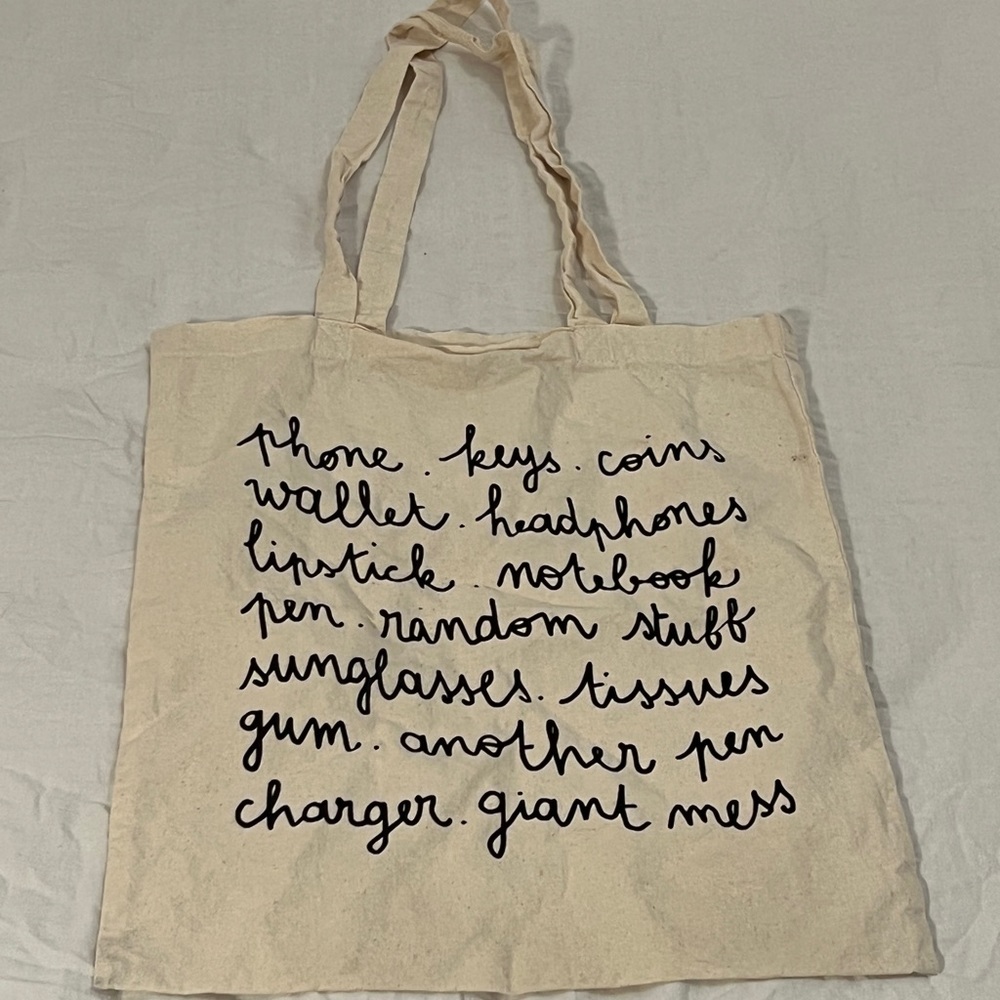 phone . keys . coins
wallet . headphones
lipstick . notebook
pen . random stuff
sunglasses . tissues
gum . another pen
charger . giant mess